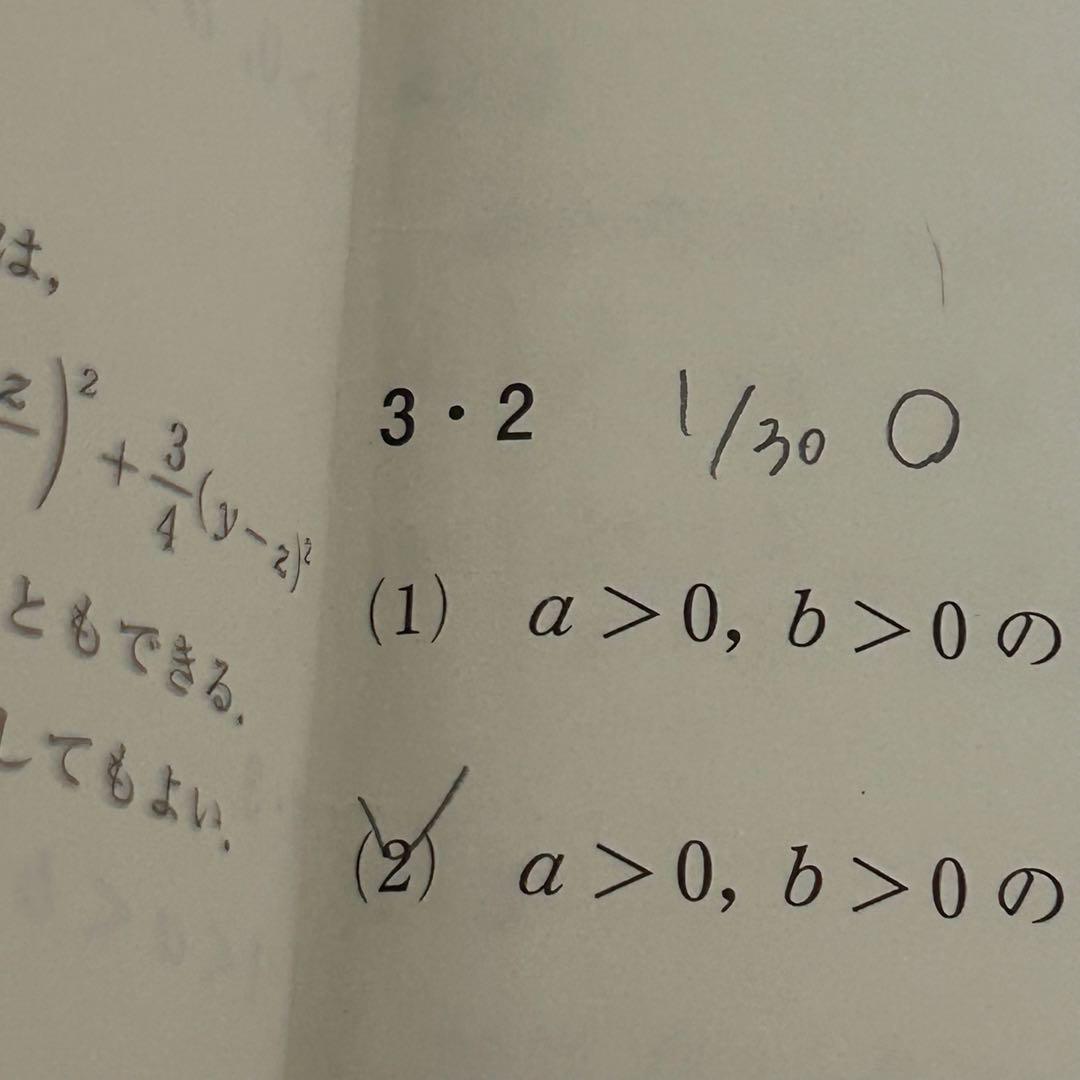 は,
z)² + 3/4(y-z)²
ともできる.
してもよい.
3・2 1/30 ○
(1) a > 0, b > 0 の
(2) a > 0, b > 0 の